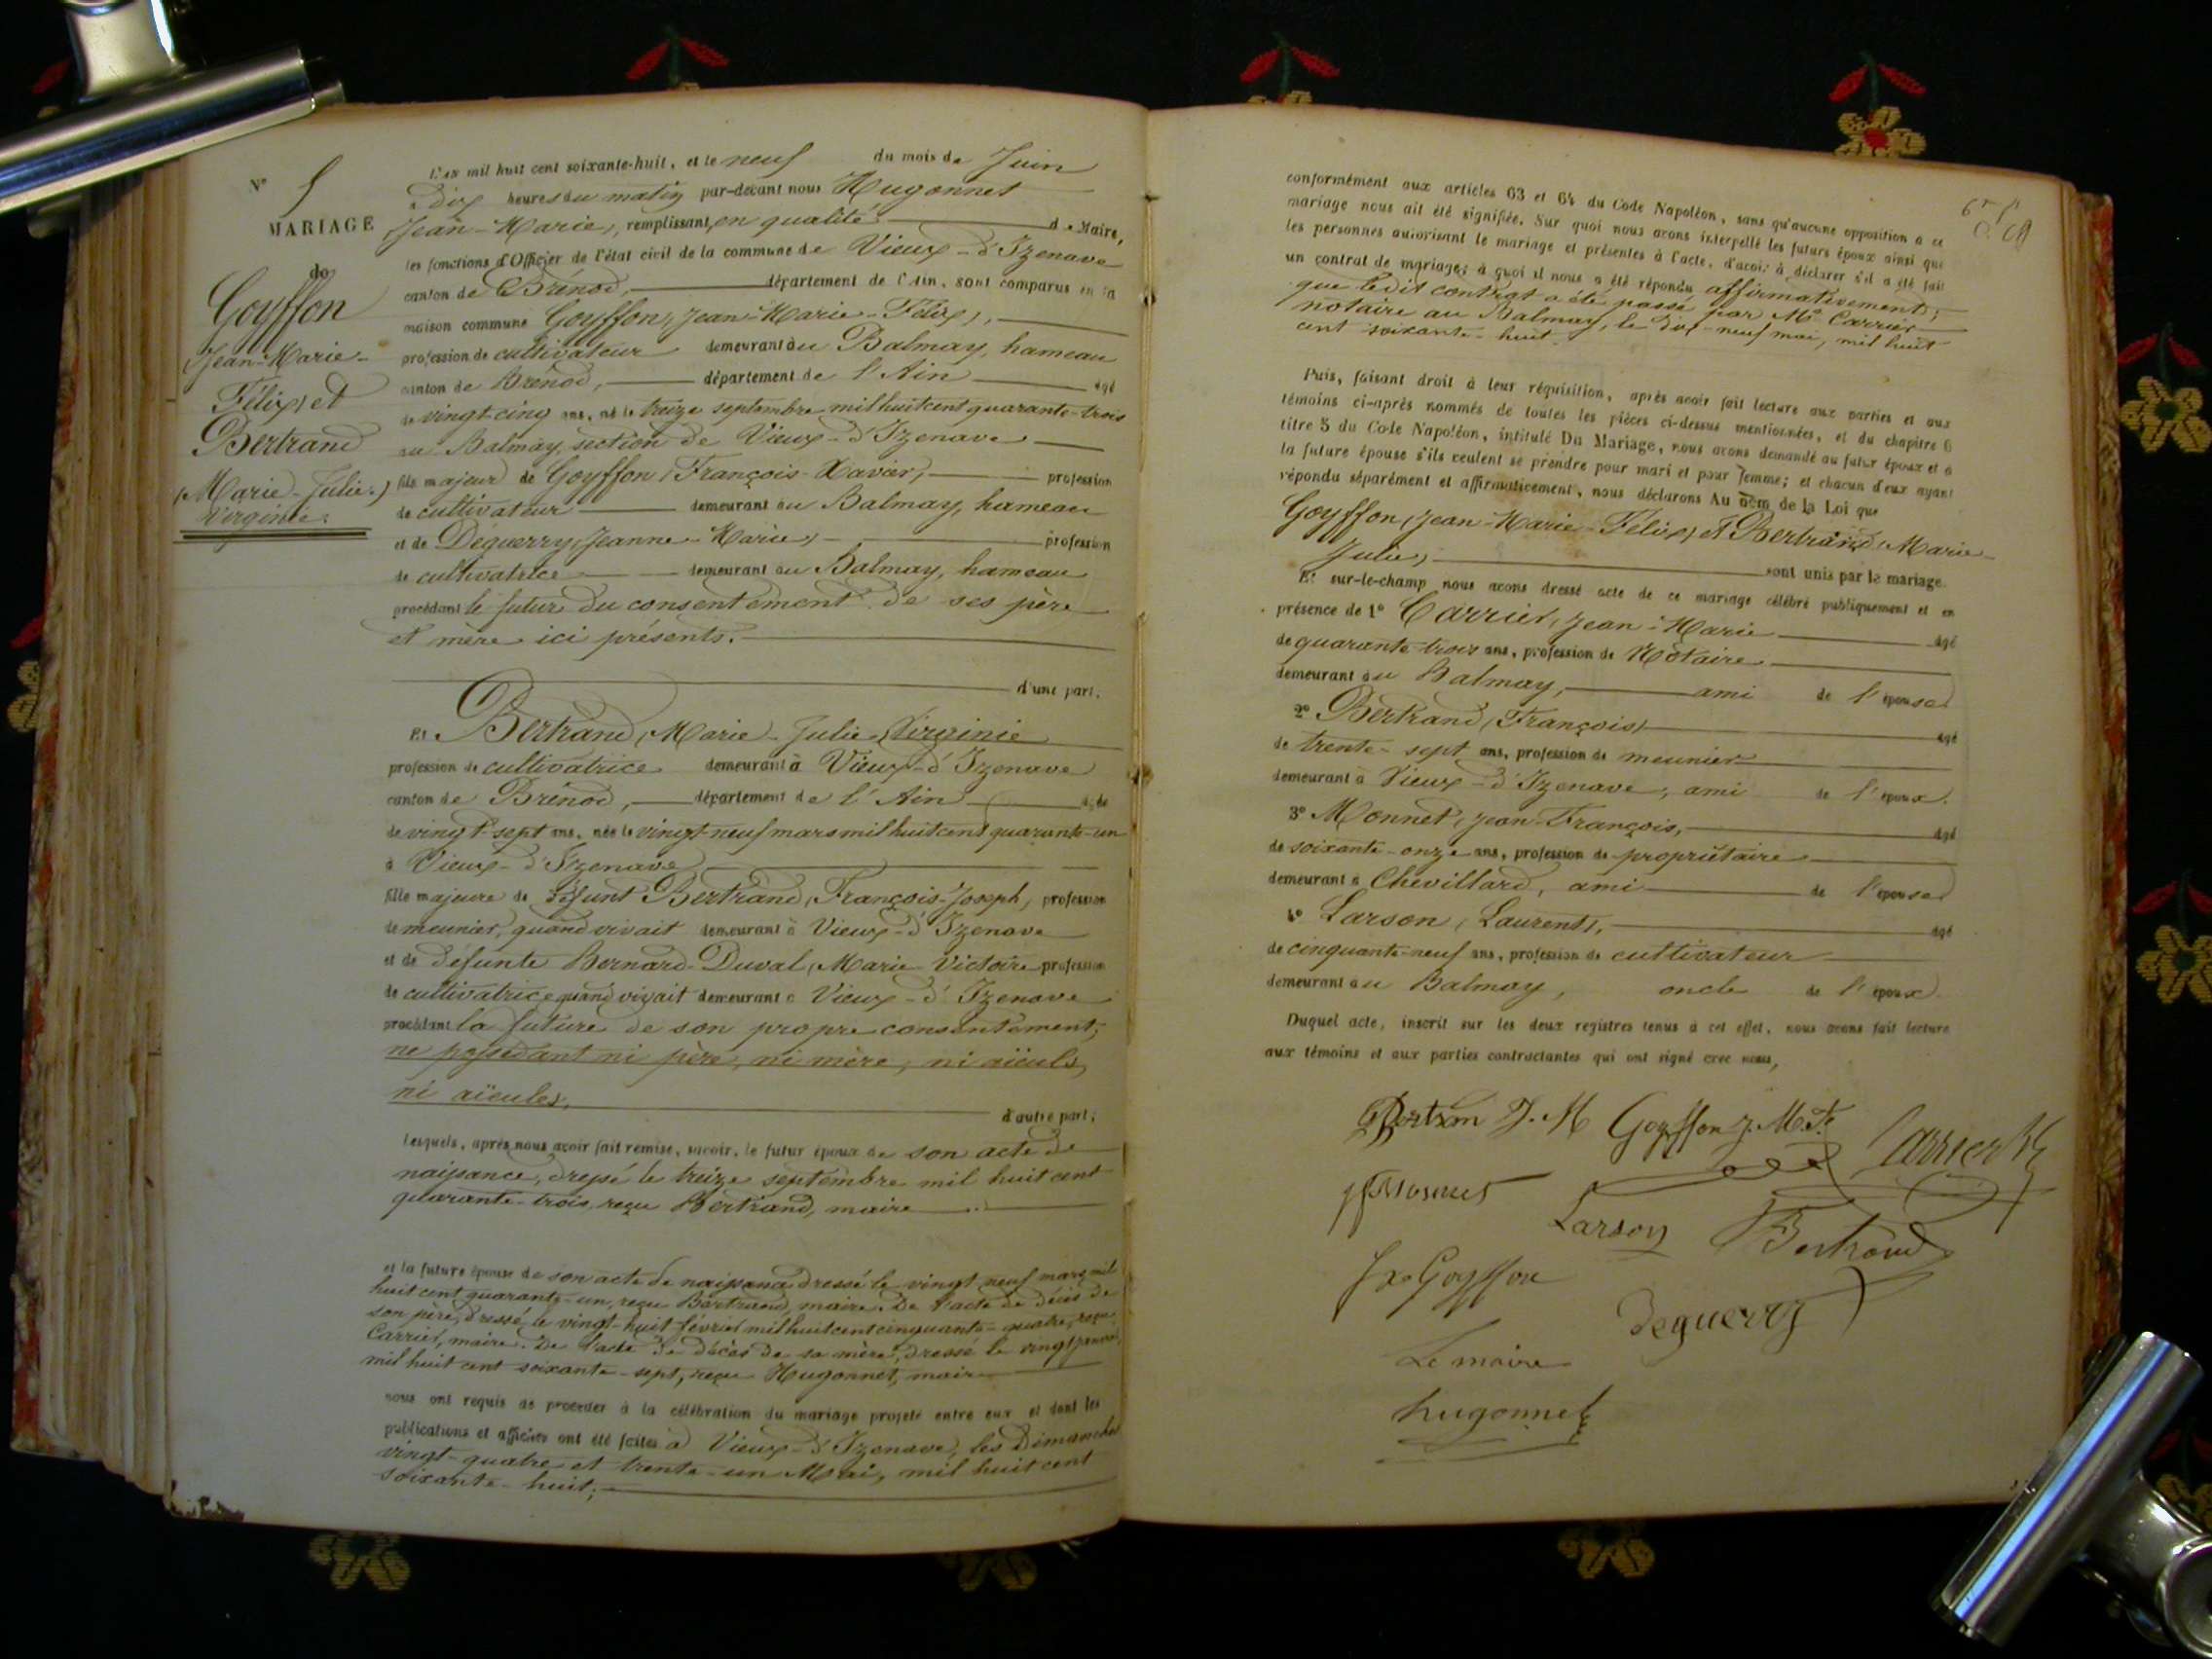 N° 5
MARIAGE
de
Goyffon
(Jean-Marie-
Félix) et
Bertrand
(Marie-Julie-)
Virginie.
L'AN mil huit cent soixante-huit, et le neuf du mois de Juin
Dix heures du matin par-devant nous Hugonnet
(Jean-Marie), remplissant, en qualité de Maire,
les fonctions d'Officier de l'état civil de la commune de Vieux-d'Izenave
canton de Brénod, département de l'Ain, sont comparus en la
maison commune Goyffon, (Jean-Marie-Félix),
profession de cultivateur demeurant au Balmay, hameau
canton de Brénod, département de l'Ain âgé
de vingt-cinq ans, né le treize septembre mil huit cent quarante-trois
au Balmay, section de Vieux-d'Izenave
fils majeur de Goyffon (François-Xavier), profession
de cultivateur demeurant au Balmay, hameau
et de Déguerry, (Jeanne-Marie) profession
de cultivatrice demeurant au Balmay, hameau
procédant le futur du consentement de ses père
et mère ici présents.
d'une part;
Et Bertrand, (Marie-Julie-Virginie
profession de cultivatrice demeurant à Vieux-d'Izenave
canton de Brénod, département de l'Ain âgée
de vingt-sept ans, née le vingt-neuf mars mil huit cent quarante-un
à Vieux-d'Izenave
fille majeure de défunt Bertrand, (François-Joseph, profession
de meunier, quand vivait demeurant à Vieux-d'Izenave
et de défunte Bernard-Duval, (Marie-Victoire profession
de cultivatrice quand vivait demeurant à Vieux-d'Izenave
procédant la future de son propre consentement;
ne possédant ni père, ni mère, ni aïeuls,
ni aïeules,
d'autre part;
Lesquels, après nous avoir fait remise, savoir, le futur époux de son acte de
naissance, dressé le treize septembre mil huit cent
quarante-trois, reçu Bertrand, maire
et la future épouse de son acte de naissance dressé le vingt neuf mars mil
huit cent quarante-un, reçu Bertrand, maire. De l'acte de décès de
son père, dressé le vingt-huit février mil huit cent cinquante-quatre, reçu
Carrier, maire. De l'acte de décès de sa mère, dressé le vingt janvier
mil huit cent soixante-sept, reçu Hugonnet, maire
nous ont requis de procéder à la célébration du mariage projeté entre eux et dont les
publications et affiches ont été faites à Vieux-d'Izenave, les Dimanches
vingt-quatre et trente-un Mai, mil huit cent
soixante-huit;
conformément aux articles 63 et 64 du Code Napoléon, sans qu'aucune opposition à ce
mariage nous ait été signifiée. Sur quoi nous avons interpellé les futurs époux ainsi que
les personnes autorisant le mariage et présentes à l'acte, d'avoir à déclarer s'il a été fait
un contrat de mariage; à quoi il nous a été répondu affirmativement;
que ledit contrat a été passé par Me. Carrier
notaire au Balmay, le dix-neuf mai, mil huit
cent soixante-huit.
Puis, faisant droit à leur réquisition, après avoir fait lecture aux parties et aux
témoins ci-après nommés de toutes les pièces ci-dessus mentionnées, et du chapitre 6
titre 5 du Code Napoléon, intitulé Du Mariage, nous avons demandé au futur époux et à
la future épouse s'ils veulent se prendre pour mari et pour femme; et chacun d'eux ayant
répondu séparément et affirmativement, nous déclarons Au nom de la Loi que
Goyffon, (Jean-Marie-Félix) et Bertrand (Marie-
Julie) sont unis par le mariage.
Et sur-le-champ nous avons dressé acte de ce mariage célébré publiquement et en
présence de 1° Carrier, Jean-Marie âgé
de quarante-trois ans, profession de Notaire
demeurant au Balmay, ami de l'épouse
2° Bertrand, (François) âgé
de trente-sept ans, profession de meunier
demeurant à Vieux-d'Izenave, ami de l'époux.
3° Monnet, Jean-François, âgé
de soixante-onze ans, profession de propriétaire
demeurant à Chevillard, ami de l'épouse
4° Larson, (Laurent), âgé
de cinquante-neuf ans, profession de cultivateur
demeurant au Balmay, oncle de l'époux.
Duquel acte, inscrit sur les deux registres tenus à cet effet, nous avons fait lecture
aux témoins et aux parties contractantes qui ont signé avec nous,
Bertran J. M Goyffon J. M. F. Carrier
Larson Bertrand
Fx Goyffon
Deguerry
Le maire
hugonnet